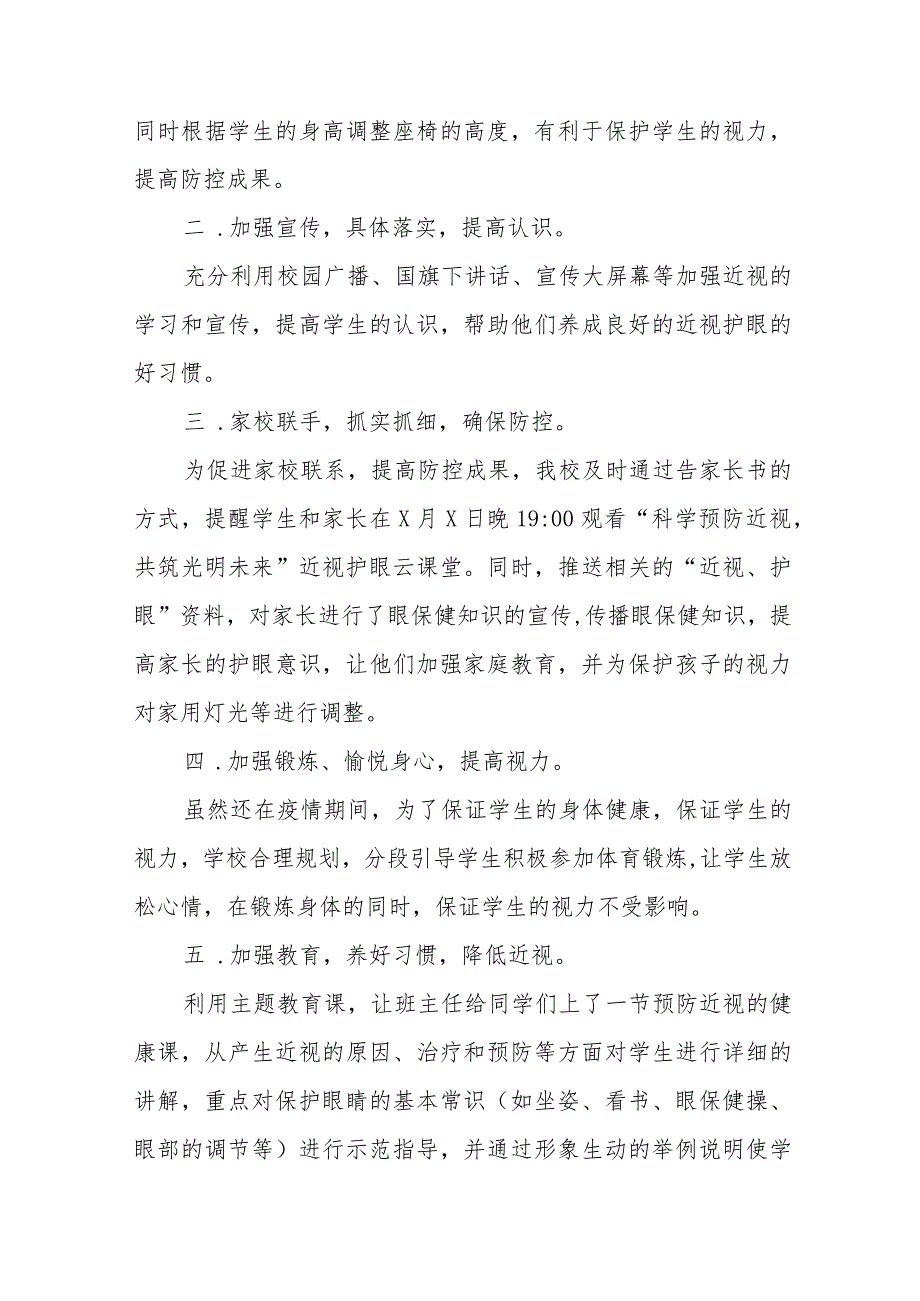 同时根据学生的身高调整座椅的高度，有利于保护学生的视力，
提高防控成果。
二 .加强宣传，具体落实，提高认识。
充分利用校园广播、国旗下讲话、宣传大屏幕等加强近视的
学习和宣传，提高学生的认识，帮助他们养成良好的近视护眼的
好习惯。
三 .家校联手，抓实抓细，确保防控。
为促进家校联系，提高防控成果，我校及时通过告家长书的
方式，提醒学生和家长在 X 月 X 日晚 19:00 观看“科学预防近视，
共筑光明未来”近视护眼云课堂。同时，推送相关的“近视、护
眼”资料，对家长进行了眼保健知识的宣传,传播眼保健知识，提
高家长的护眼意识，让他们加强家庭教育，并为保护孩子的视力
对家用灯光等进行调整。
四 .加强锻炼、愉悦身心，提高视力。
虽然还在疫情期间，为了保证学生的身体健康，保证学生的
视力，学校合理规划，分段引导学生积极参加体育锻炼,让学生放
松心情，在锻炼身体的同时，保证学生的视力不受影响。
五 .加强教育，养好习惯，降低近视。
利用主题教育课，让班主任给同学们上了一节预防近视的健
康课，从产生近视的原因、治疗和预防等方面对学生进行详细的
讲解，重点对保护眼睛的基本常识（如坐姿、看书、眼保健操、
眼部的调节等）进行示范指导，并通过形象生动的举例说明使学